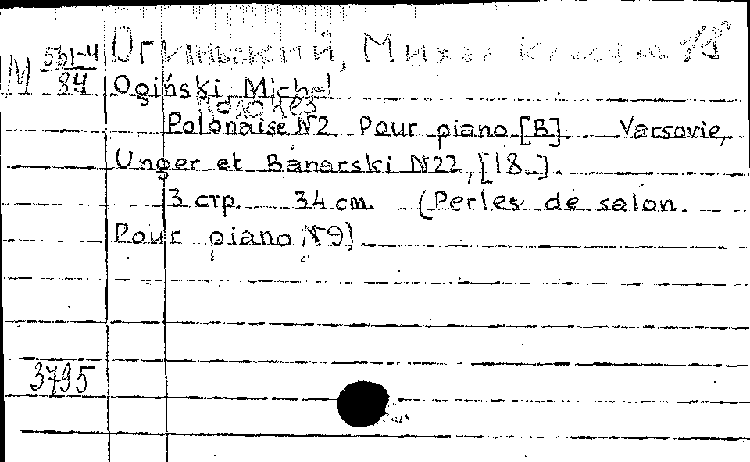 М 561-4/84 Огиньский, Михал
Ogiński Michel
Polonaise №2 Pour piano [B]. Varsovie,
Unger et Banarski №22, [18..].
3 стр. 34 cm. (Perles de salon.
Pour piano, №9)
3795